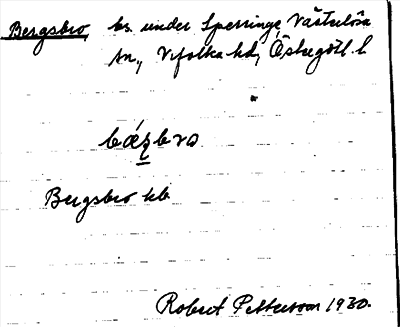 Bergsbro, ks. under Sperringe, Västerlösa
sn., Vifolka hd, Östergötl. l
bǽrbro
Bergsbro kb
Robert Pettersson 1930.